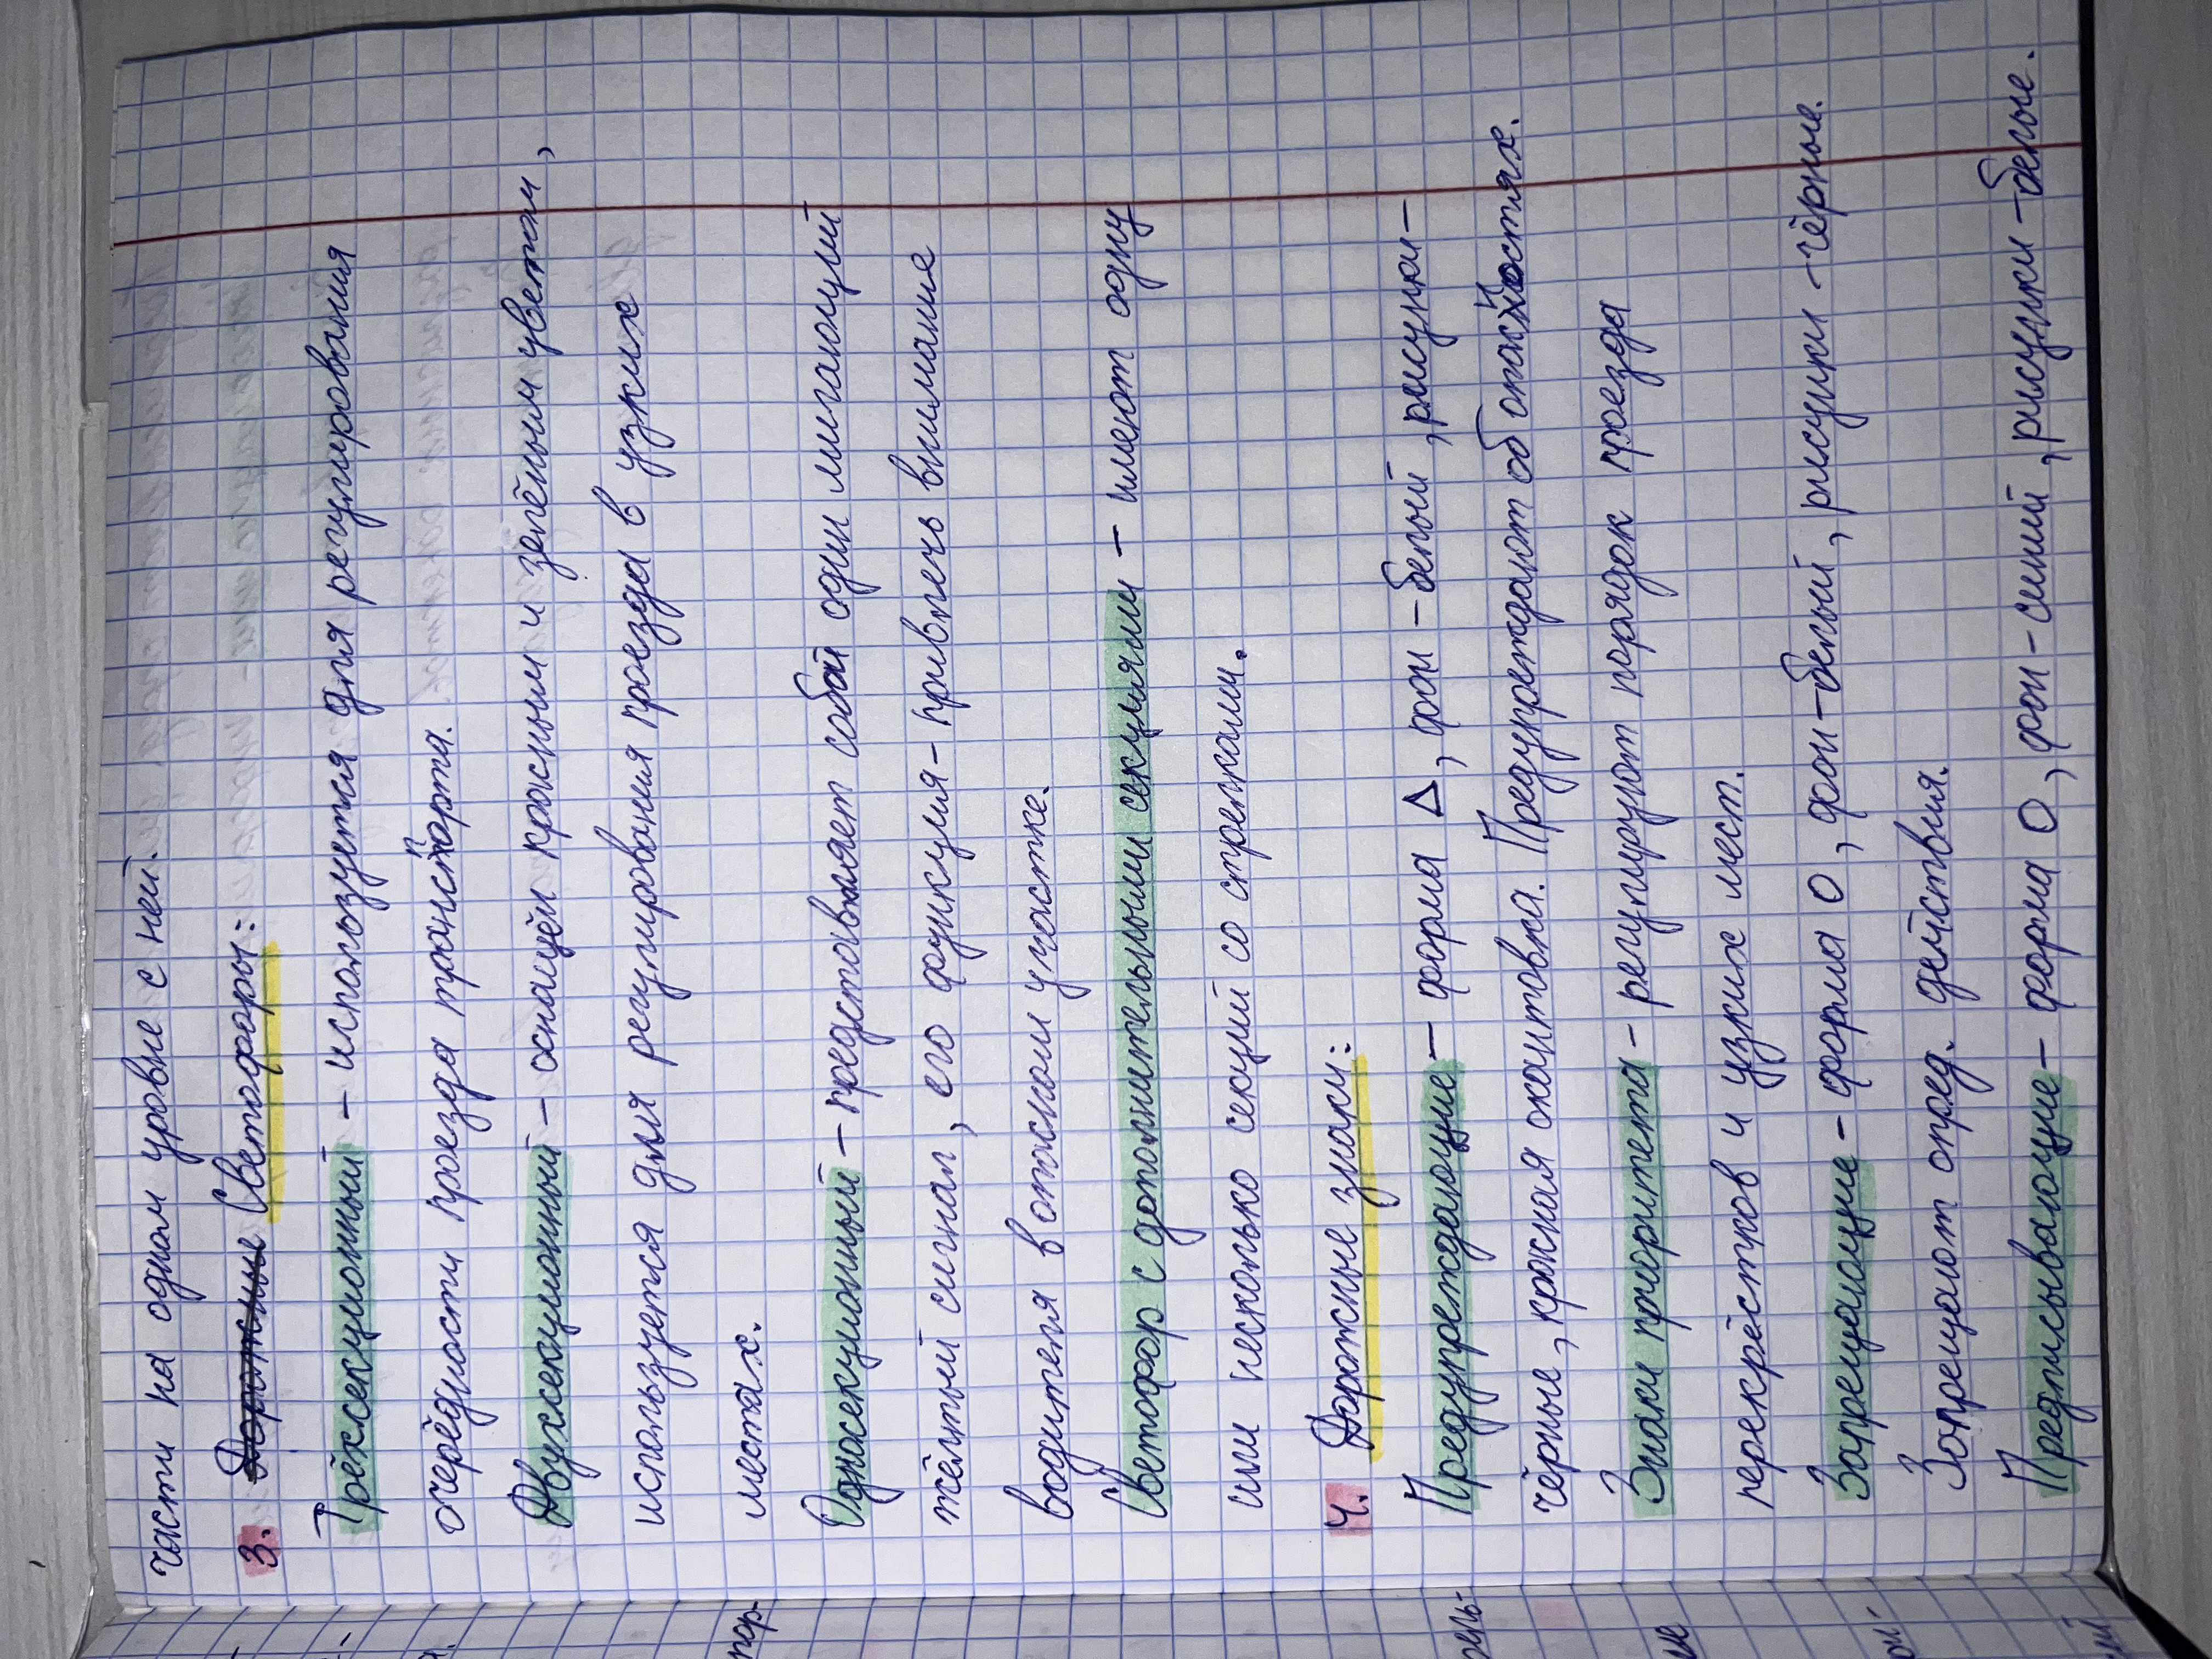 части на одном уровне с ней.
3. Дорожные Светофоры:
Трёхсекционный - используется для регулирования
очерёдности проезда транспорта.
Двухсекционный - оснащён красным и зелёным цветом,
используется для регулирования проезда в узких
местах.
Односекционный - представляет собой один мигающий
жёлтый сигнал, его функция - привлечь внимание
водителя в опасном участке.
Светофор с дополнительными секциями - имеют одну
или несколько секций со стрелками.
4. Дорожные знаки:
Предупреждающие - форма Δ, фон - белый, рисунки -
чёрные, красная окантовка. Предупреждают об опасностях.
Знаки приоритета - регулируют порядок проезда
перекрёстков и узких мест.
Запрещающие - форма О, фон - белый, рисунки - чёрные.
Запрещают опред. действия.
Предписывающие - форма О, фон - синий, рисунки - белые.